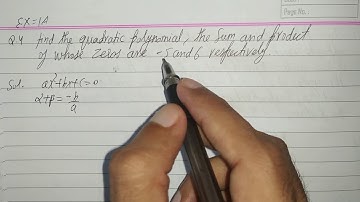 EX=1A
Q4 find the quadratic polynomial, the sum and product
of whose zeros are -5 and 6 respectively
Sol. ax²+bx+c=0
α+β=-b/a
Page No.